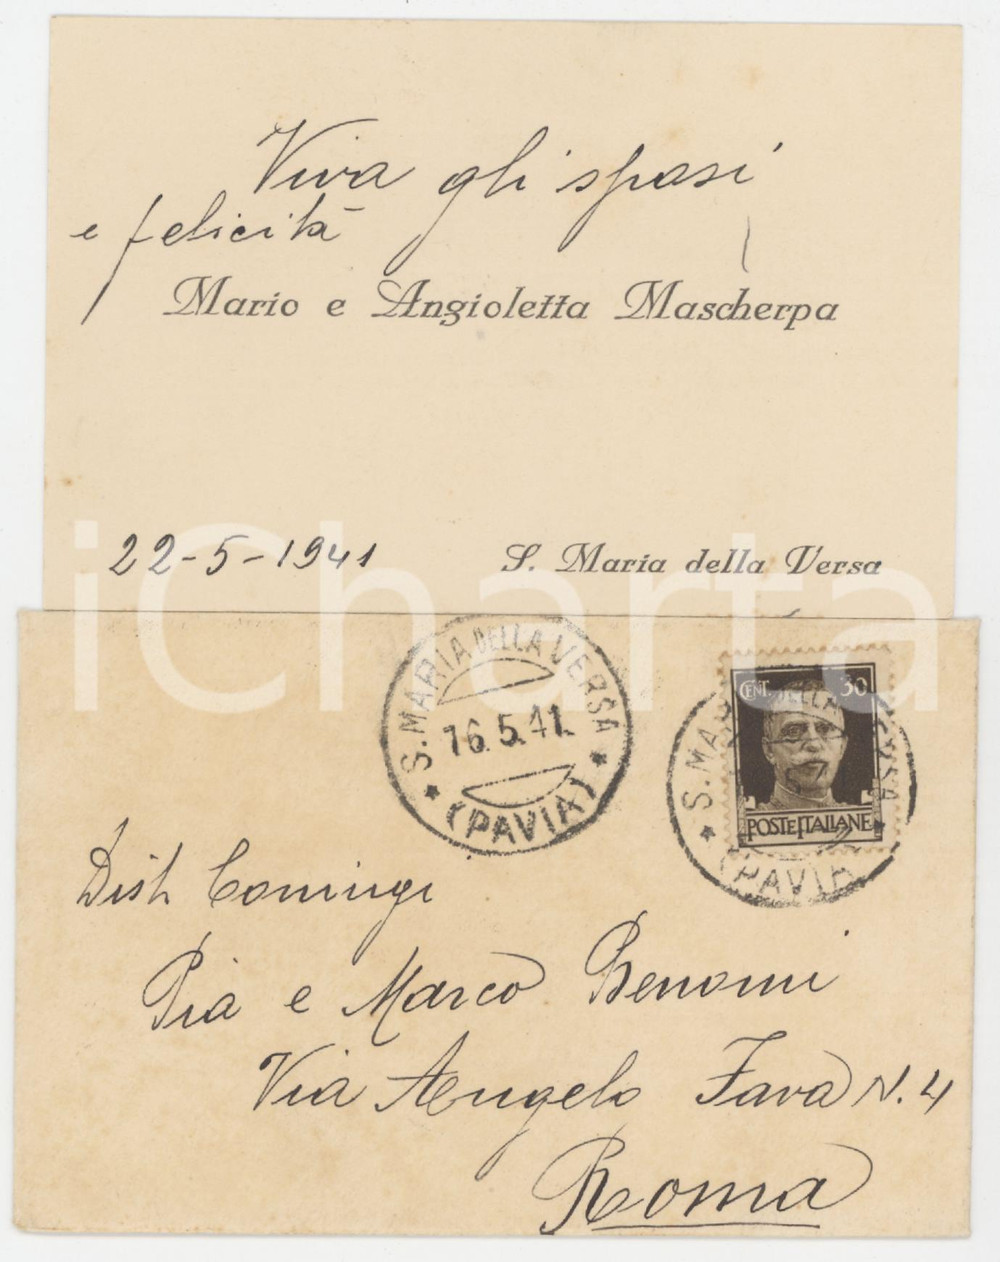 Viva gli sposi
e felicità
Mario e Angioletta Mascherpa
22-5-1941
S. Maria della Versa
iCharta
S. MARIA DELLA VERSA
16.5.41.
* (PAVIA) *
CENT. 30
POSTE ITALIANE
S. MARIA DELLA VERSA
* (PAVIA) *
Dist. Coniugi
Pia e Marco Benomi
Via Angelo Fava N. 4
Roma